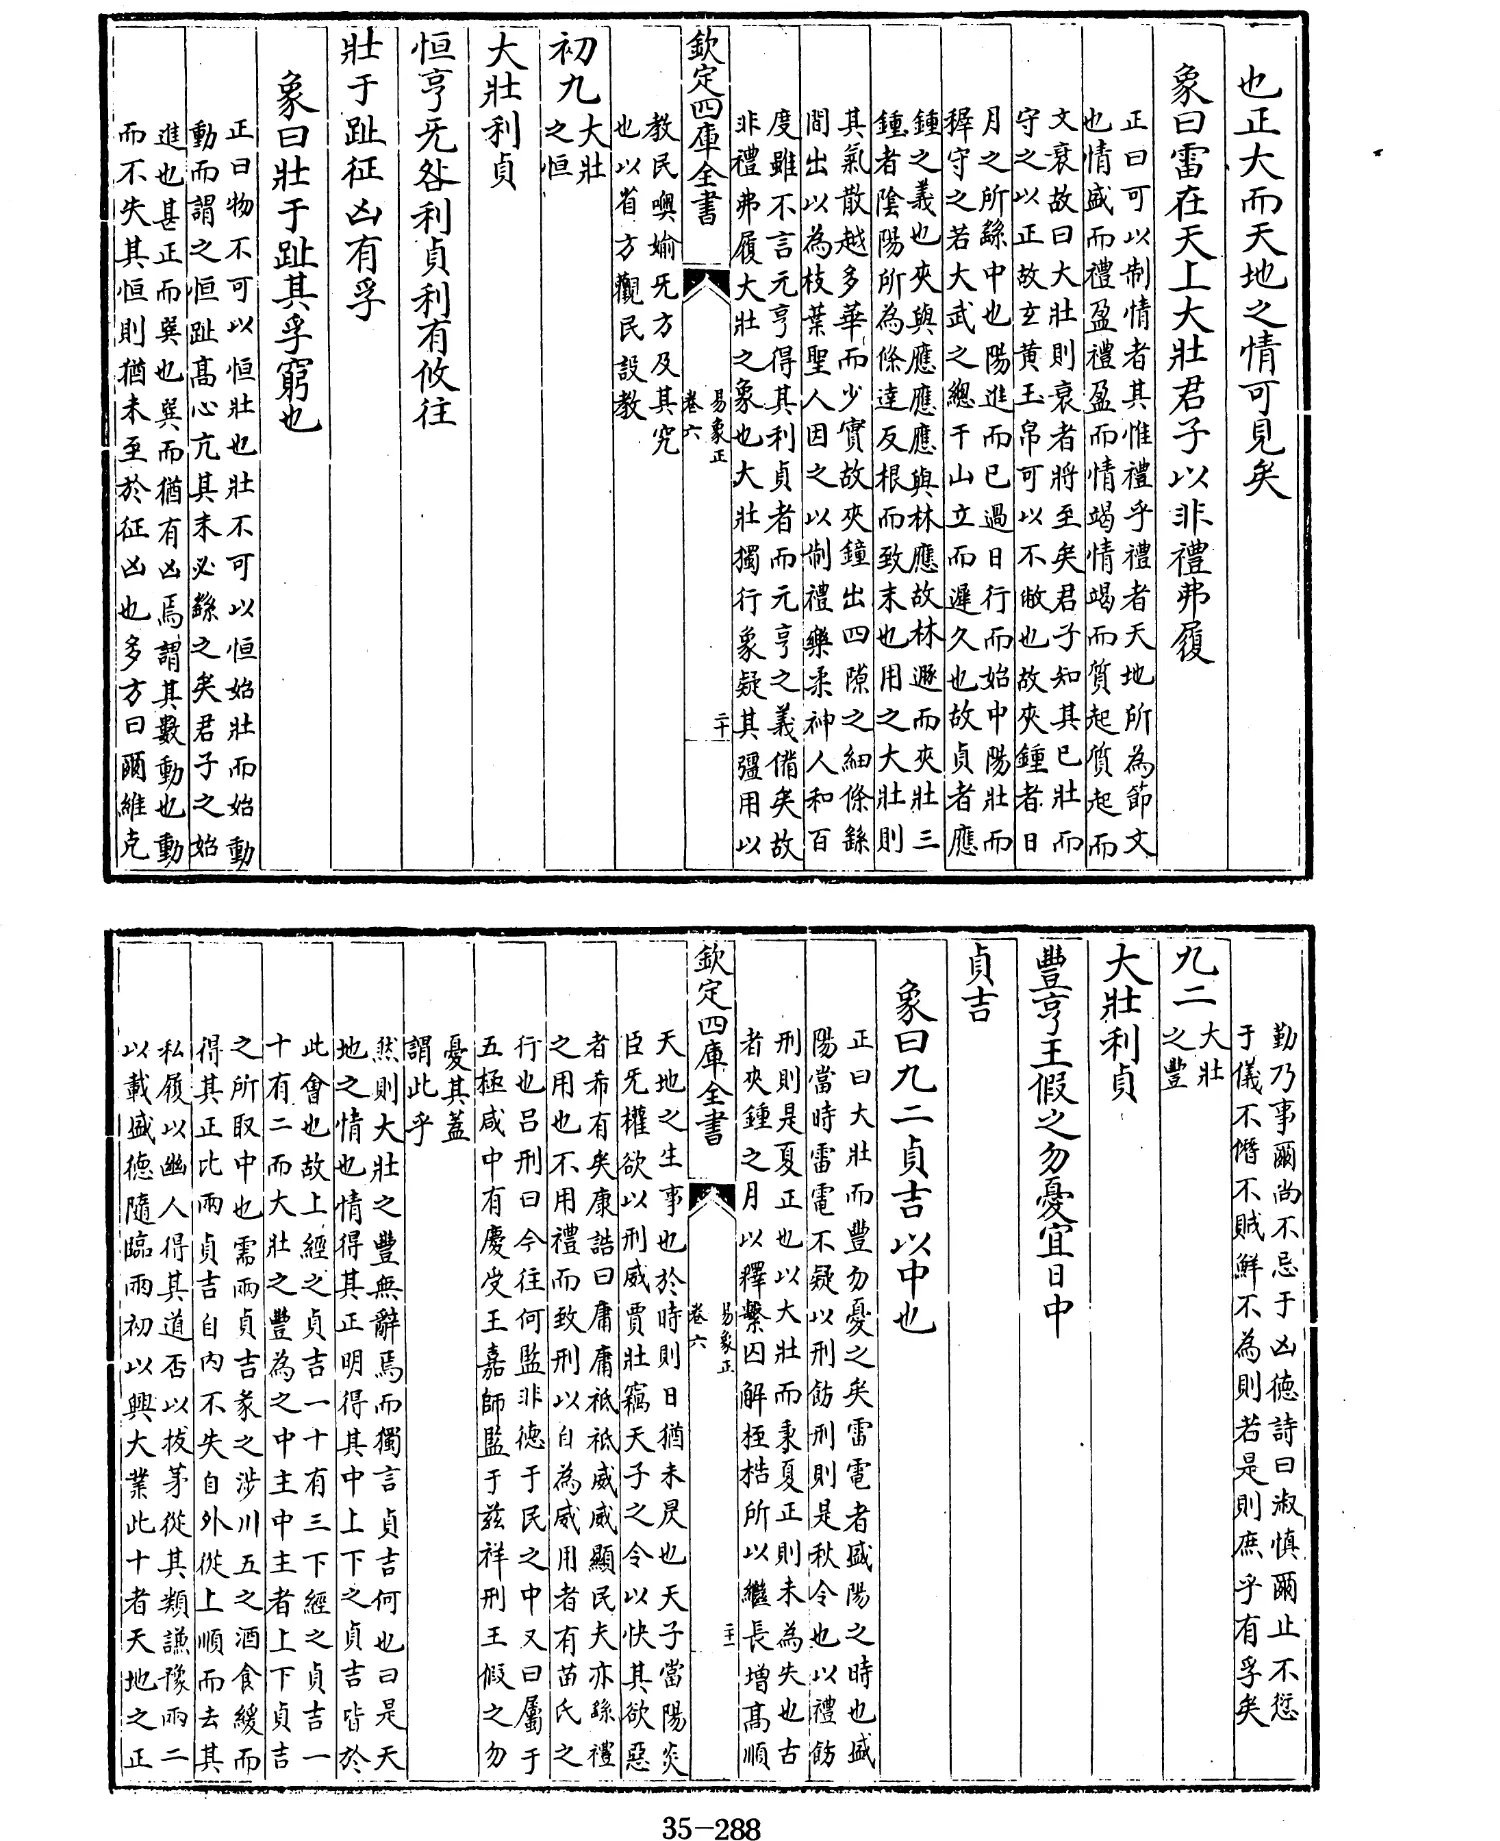 也正大而天地之情可見矣
象曰雷在天上大壯君子以非禮弗履
正曰可以制情者其惟禮乎禮者天地所為節文
也情盛而禮盈禮盈而情竭情竭而質起質起而
文衰故曰大壯則衰者將至矣君子知其已壯而
守之以正故玄黃玉帛可以不敝也故夾鍾者日
月之所繇中也陽進而已過日行而始中陽壯而
穉守之若大武之總干山立而遲久也故貞者應
鍾之義也夾與應應應與林應故林遯而夾壯三
鍾者陰陽所為條達反根而致末也用之大壯則
其氣散越多華而少實故夾鐘出四隙之細條繇
間出以為枝葉聖人因之以制禮樂柔神人和百
度雖不言元亨得其利貞者而元亨之義備矣故
非禮弗履大壯之象也大壯獨行象疑其彊用以
欽定四庫全書
易象正
卷六
二十
教民噢媮旡方及其究
也以省方觀民設教
初九
大壯
之恒
大壯利貞
恒亨旡咎利貞利有攸往
壯于趾征凶有孚
象曰壯于趾其孚窮也
正曰物不可以恒壯也壯不可以恒始壯而始動
動而謂之恒趾高心亢其末必繇之矣君子之始
進也甚正而巽也巽而猶有凶焉謂其數動也動
而不失其恒則猶未至於征凶也多方曰爾維克
勤乃事爾尚不忌于凶德詩曰淑慎爾止不愆
于儀不僭不賊鮮不為則若是則庶乎有孚矣
九二
大壯
之豐
大壯利貞
豐亨王假之勿憂宜日中
貞吉
象曰九二貞吉以中也
正曰大壯而豐勿憂之矣雷電者盛陽之時也盛
陽當時雷電不疑以刑飭刑則是秋令也以禮飭
刑則是夏正也以大壯而秉夏正則未為失也古
者夾鍾之月以釋繫囚解桎梏所以繼長增高順
欽定四庫全書
易象正
卷六
二十一
天地之生事也於時則日猶未昃也天子當陽炎
臣旡權欲以刑威賈壯竊天子之令以快其欲惡
者希有矣康誥曰庸庸祗祗威威顯民夫亦繇禮
之用也不用禮而致刑以自為威用者有苗氏之
行也呂刑曰今往何監非德于民之中又曰屬于
五極咸中有慶受王嘉師監于兹祥刑王假之勿
憂其蓋
謂此乎
然則大壯之豐無辭焉而獨言貞吉何也曰是天
地之情也情得其正明得其中上下之貞吉皆於
此會也故上經之貞吉一十有三下經之貞吉一
十有二而大壯之豐為之中主中主者上下貞吉
之所取中也需兩貞吉彖之涉川五之酒食緩而
得其正比兩貞吉自内不失自外從上順而去其
私履以幽人得其道否以拔茅從其類謙豫兩二
以載盛德隨臨兩初以興大業此十者天地之正
35-288